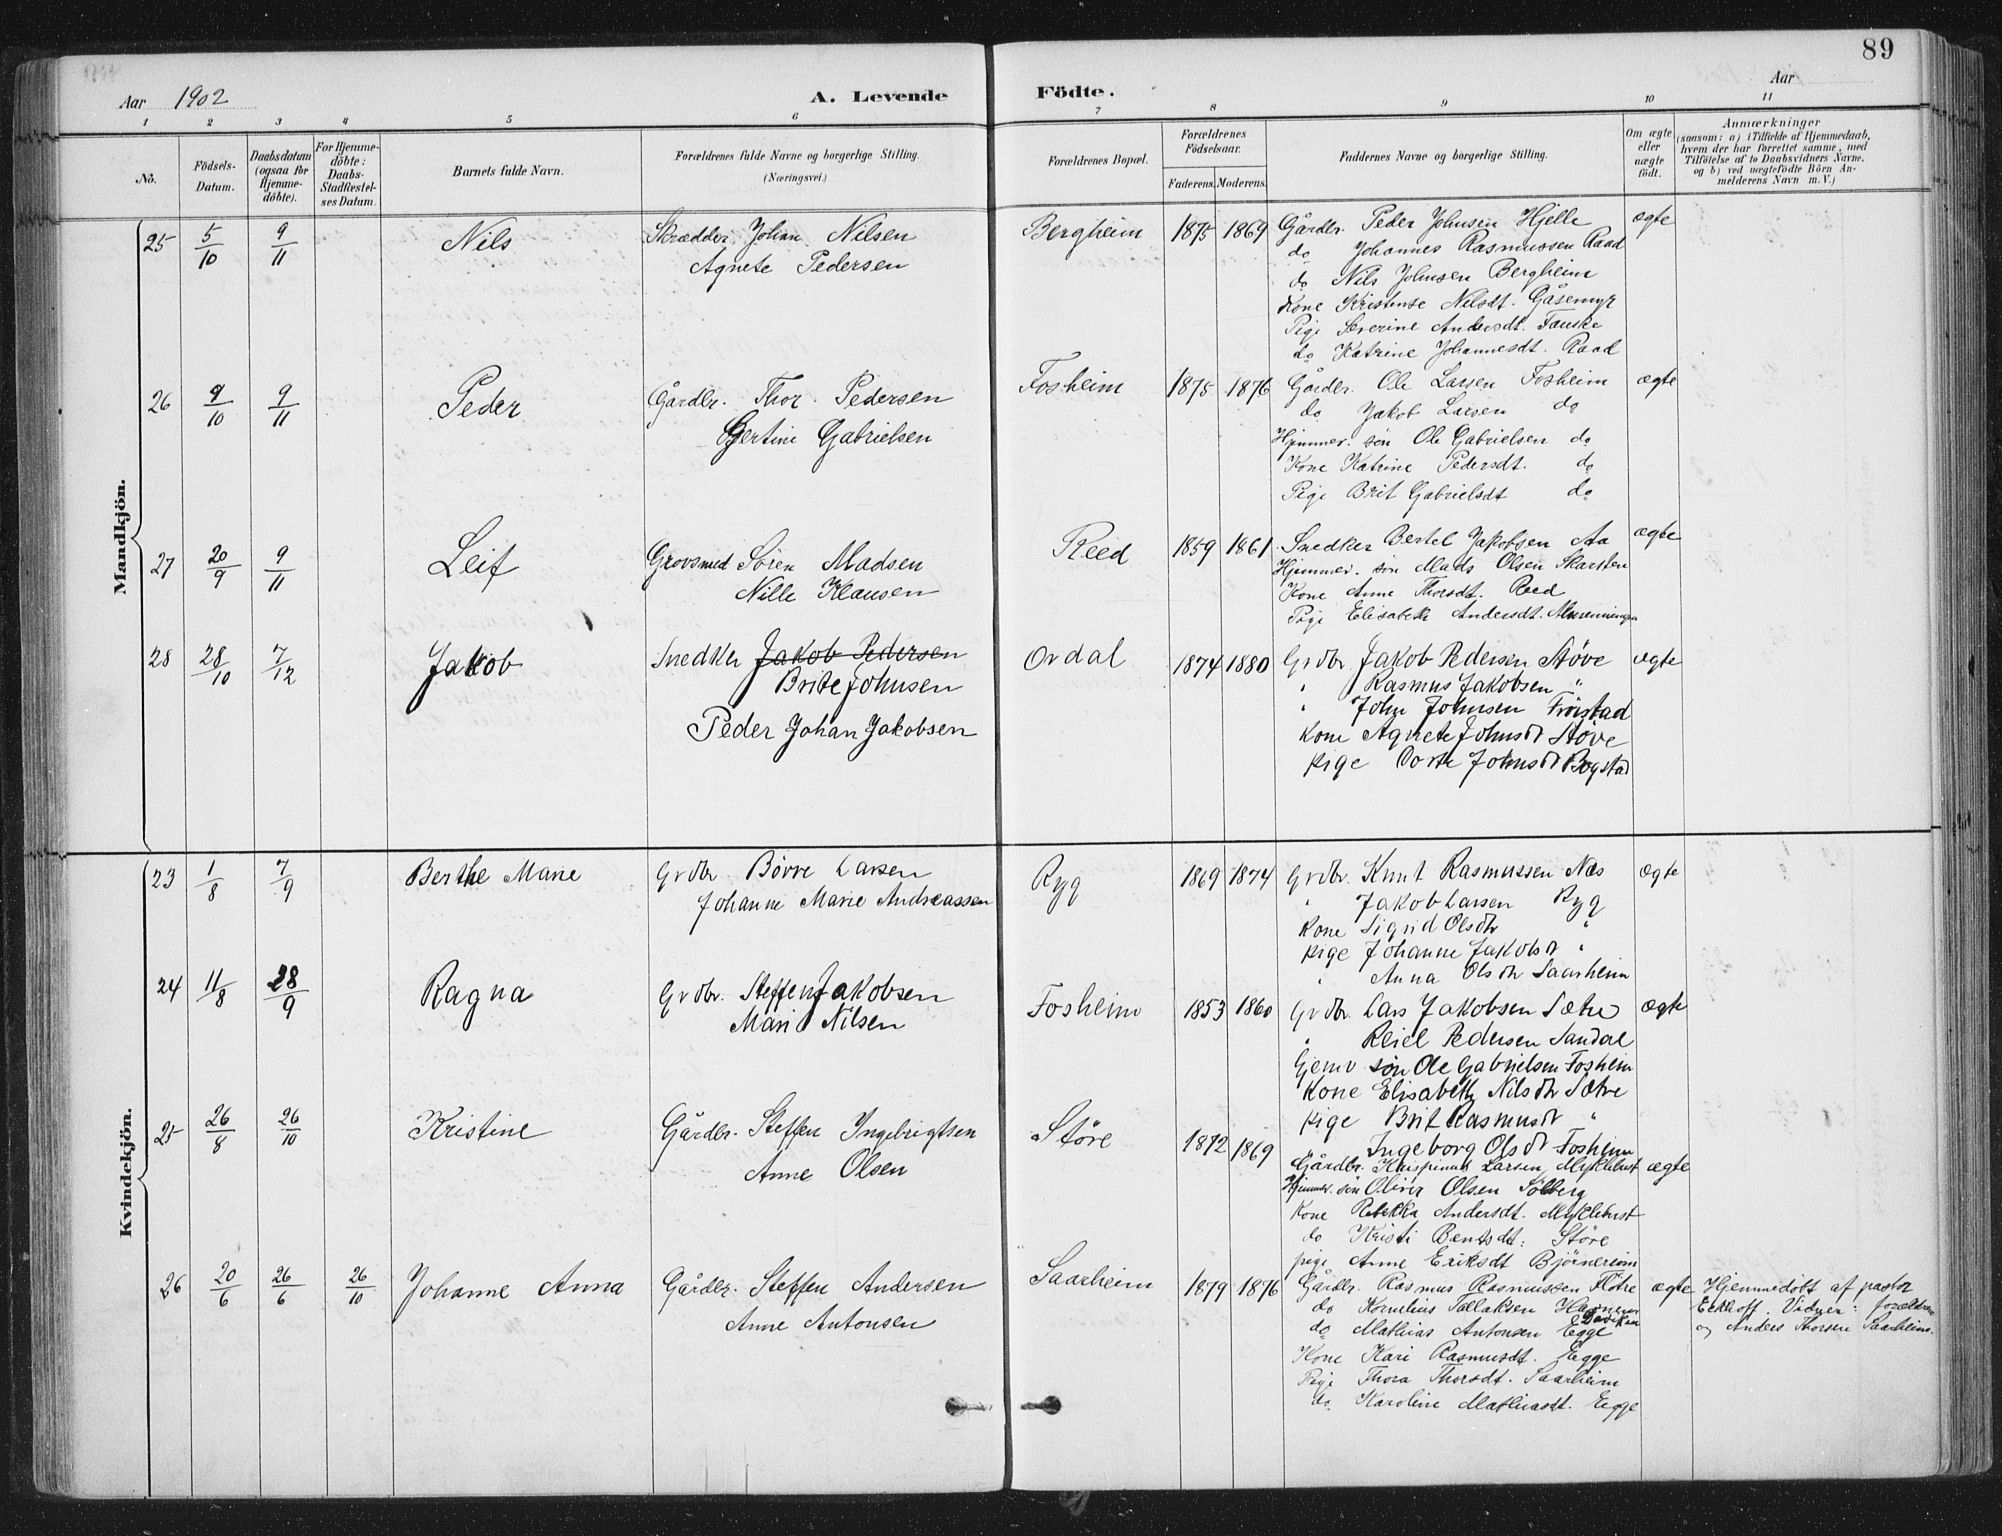 89
Aar 1902
A. Levende Födte.
Aar
1 2 3 4 5 6 7 8 9 10 11
No.
Födsels-Datum.
Daabsdatum (ogsaa for Hjemmedöbte).
For Hjemmedöbte: Daabs-Stadfæstelses Datum.
Barnets fulde Navn.
Forældrenes fulde Navne og borgerlige Stilling.
(Næringsvei.)
Forældrenes Bopæl.
Forældrenes Födselsaar.
Faderens. Moderens.
Faddernes Navne og borgerlige Stilling.
Om ægte eller uægte födt.
Anmærkninger
(saasom: a) i Tilfælde af Hjemmedaab,
hvem der har forrettet samme, med
Tilföielse af to Daabsvidners Navne.
og b) ved uægtefödte Börn An-
melderens Navn m. V.)
Mandkjön.
25 5/10 9/11 Nils Skrædder Johan Nilsen Bergheim 1875 1869 Gårdbr. Peder Johnsen Hjelle ægte
Agnete Pedersen do Johannes Rasmussen Raad
do Nils Johnsen Bergheim
Kone Kristense Nilsdt. Gåsemyr
Pige Severine Andersdt. Fauske
do Katrine Johannesdt. Raad
26 9/10 9/11 Peder Gårdbr. Thor Pedersen Fosheim 1875 1876 Gårdbr. Ole Larsen Fosheim ægte
Gjertine Gabrielsen do Jakob Larsen do
Hjemmev. søn Ole Gabrielsen do
Kone Katrine Pedersdt. do
Pige Brit Gabrielsdt do
27 20/9 9/11 Leif Grovsmed Søren Madsen Reed 1859 1861 Snedker Bertel Jakobsen Aa ægte
Nille Klausen Hjemmev. søn Mads Olsen Skarsten
Kone Anne Thorsdt. Reed
Pige Elisabeth Andersdt.
28 28/10 7/12 Jakob Snedker Jakob Pedersen Ordal 1874 1880 Grdbr. Jakob Pedersen Støve ægte
Brite Johnsen " Rasmus Jakobsen "
Peder Johan Jakobsen " John Johnsen Frøistad
Kone Agnete Johnsdt Støve
Pige Dorte Johnsdt Bogstad
Kvindekjön.
23 1/8 7/9 Berthe Marie Grdbr. Børre Larsen Ryg 1869 1874 Grdbr. Knut Rasmussen Næs ægte
Johanne Marie Andreassen " Jakob Larsen Ryg
Kone Sigrid Olsdtr "
Pige Johanne Jakobsdt "
" Anna Olsdtr Saarheim
24 11/8 28/9 Ragna Grdbr. Steffen Jakobsen Fosheim 1853 1860 Grdbr. Lars Jakobsen Sætre ægte
Mari Nilsen " Reiel Pedersen Sandal
Hjemv søn Ole Gabrielsen Fosheim
Kone Elisabeth Nilsdtr Sætre
Pige Brit Rasmusdt "
" Ingeborg Olsdt Fosheim
25 26/8 26/10 Kristine Gårdbr. Steffen Ingebrigtsen Støre 1872 1869 Gårdbr. Krispinus Larsen Myklebust ægte
Anne Olsen Hjemmev. søn Oliver Olsen Solberg
Kone Rebekka Andersdt. Myklebust
do Kristi Bentsdt. Støre
pige Anne Eriksdt Bjørnereim
26 20/6 26/6 26/10 Johanne Anna Gårdbr. Steffen Andersen Saarheim 1879 1876 Gårdbr. Rasmus Rasmussen Fløtre ægte Hjemmedøbt af pastor
Anne Antonsen do Kornelius Tollaksen Davikens Eckhoff. Vidner: forældrene
do Mathias Antonsen Egge og Anders Thorsen Saarheim.
Kone Kari Rasmusdt. Egge
Pige Thora Thorsdt. Saarheim
do Karoline Mathiasdt. Egge